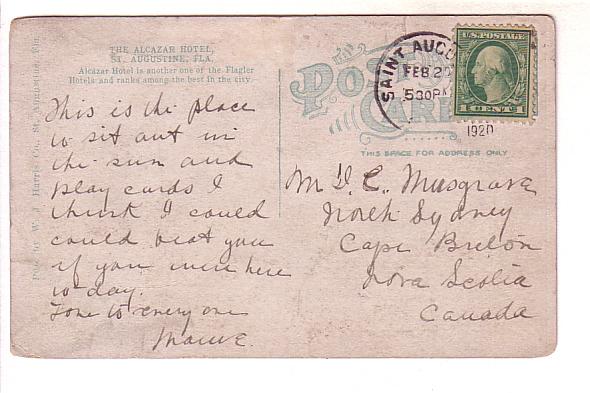 THE ALCAZAR HOTEL,
ST. AUGUSTINE, FLA.
Alcazar Hotel is another one of the Flagler
Hotels and ranks among the best in the city.
This is the place
to sit out in
the sun and
play cards I
think I could
could beat you
if you were here
to-day.
Love to every one
POST CARD
THIS SPACE FOR ADDRESS ONLY
SAINT AUGU
FEB 20
530PM
1920
U.S. POSTAGE
1 CENT 1
Musgrave
North Sydney
Cape Breton
Nova Scotia
Canada
Pub. by W. J. Harris Co., St. Augustine, Fla.